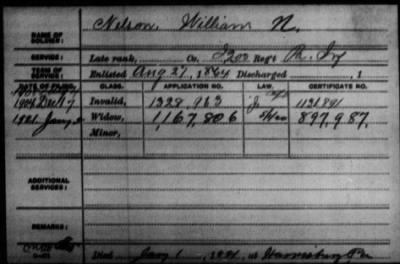 NAME OF SOLDIER: Nelson, William N.
SERVICE: Late rank, Co. Reg't Pa. Inf
TERM OF SERVICE: Enlisted Aug 27, 1864 Discharged , 1
DATE OF FILING. CLASS. APPLICATION NO. LAW. CERTIFICATE NO.
1904 Dec 17 Invalid, 1328,963 1131891
1921. Jany Widow, 1,167,806 897,987.
Minor,
ADDITIONAL SERVICES:
REMARKS:
Died Jany 1, 1921, at Harrisburg Pa